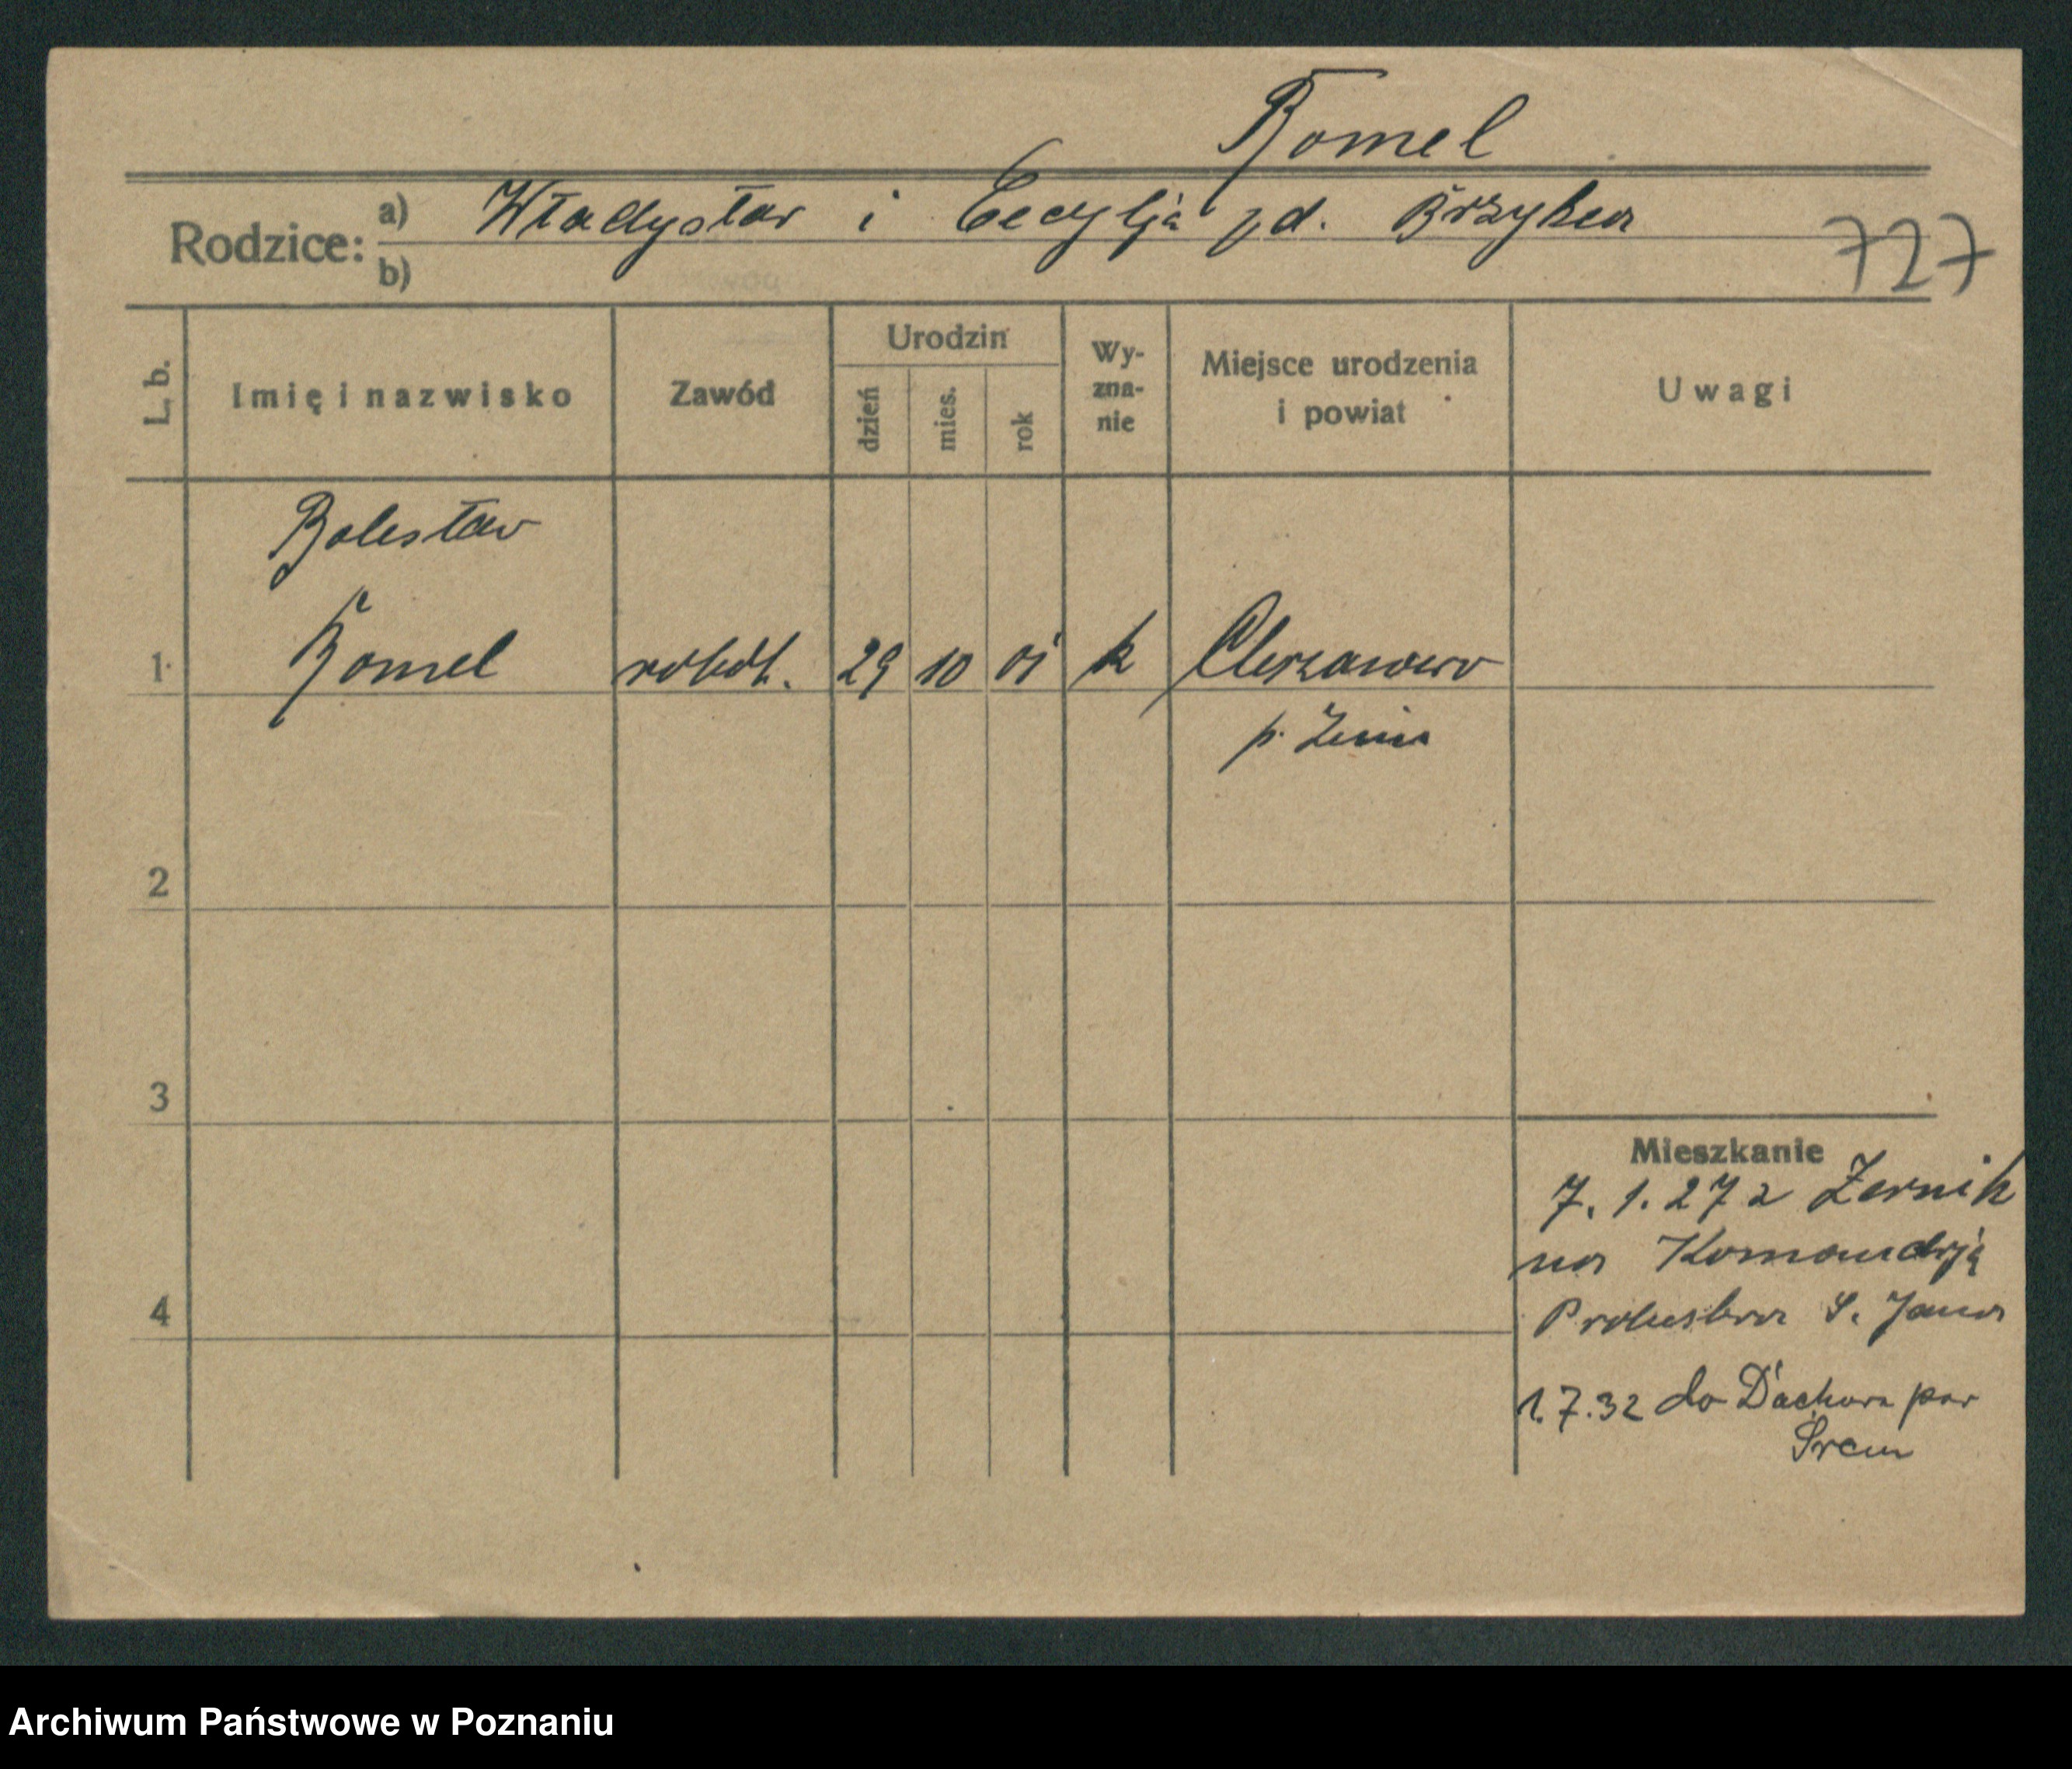 Bomel
Rodzice: a) Władysław i Cecylja zd. Brzyken
b)
727
L. b.
Imię i nazwisko
Zawód
Urodzin
dzień
mies.
rok
Wy-
zna-
nie
Miejsce urodzenia
i powiat
Uwagi
Bolesław
1 Bomel robot. 29 10 01 k
p. Żnin
2
3
4
Mieszkanie
7. 1. 27 z Żernik
na Komandrją
Probostwo S. Jana
1.7.32 do Dachowa pow
Śrem
Archiwum Państwowe w Poznaniu